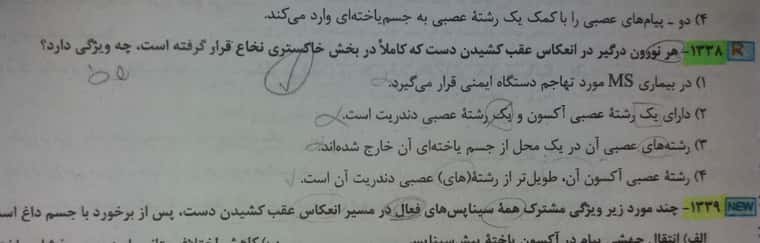 ۴) دو ـ پیام‌های عصبی را با کمک یک رشتهٔ عصبی به جسم‌یاخته‌ای وارد می‌کند.
R ۱۳۳۸- هر نورون درگیر در انعکاس عقب کشیدن دست که کاملاً در بخش خاکستری نخاع قرار گرفته است، چه ویژگی دارد؟
۱) در بیماری MS مورد تهاجم دستگاه ایمنی قرار می‌گیرد.
۲) دارای یک رشتهٔ عصبی آکسون و یک رشتهٔ عصبی دندریت است.
۳) رشته‌های عصبی آن در یک محل از جسم یاخته‌ای آن خارج شده‌اند.
۴) رشتهٔ عصبی آکسون آن، طویل‌تر از رشتهٔ(های) عصبی دندریت آن است.
NEW ۱۳۳۹- چند مورد زیر ویژگی مشترک همهٔ سیناپس‌های فعال در مسیر انعکاس عقب کشیدن دست، پس از برخورد با جسم داغ است
الف) انتقال جهشی پیام در آکسون یاختهٔ پیش‌سیناپسی